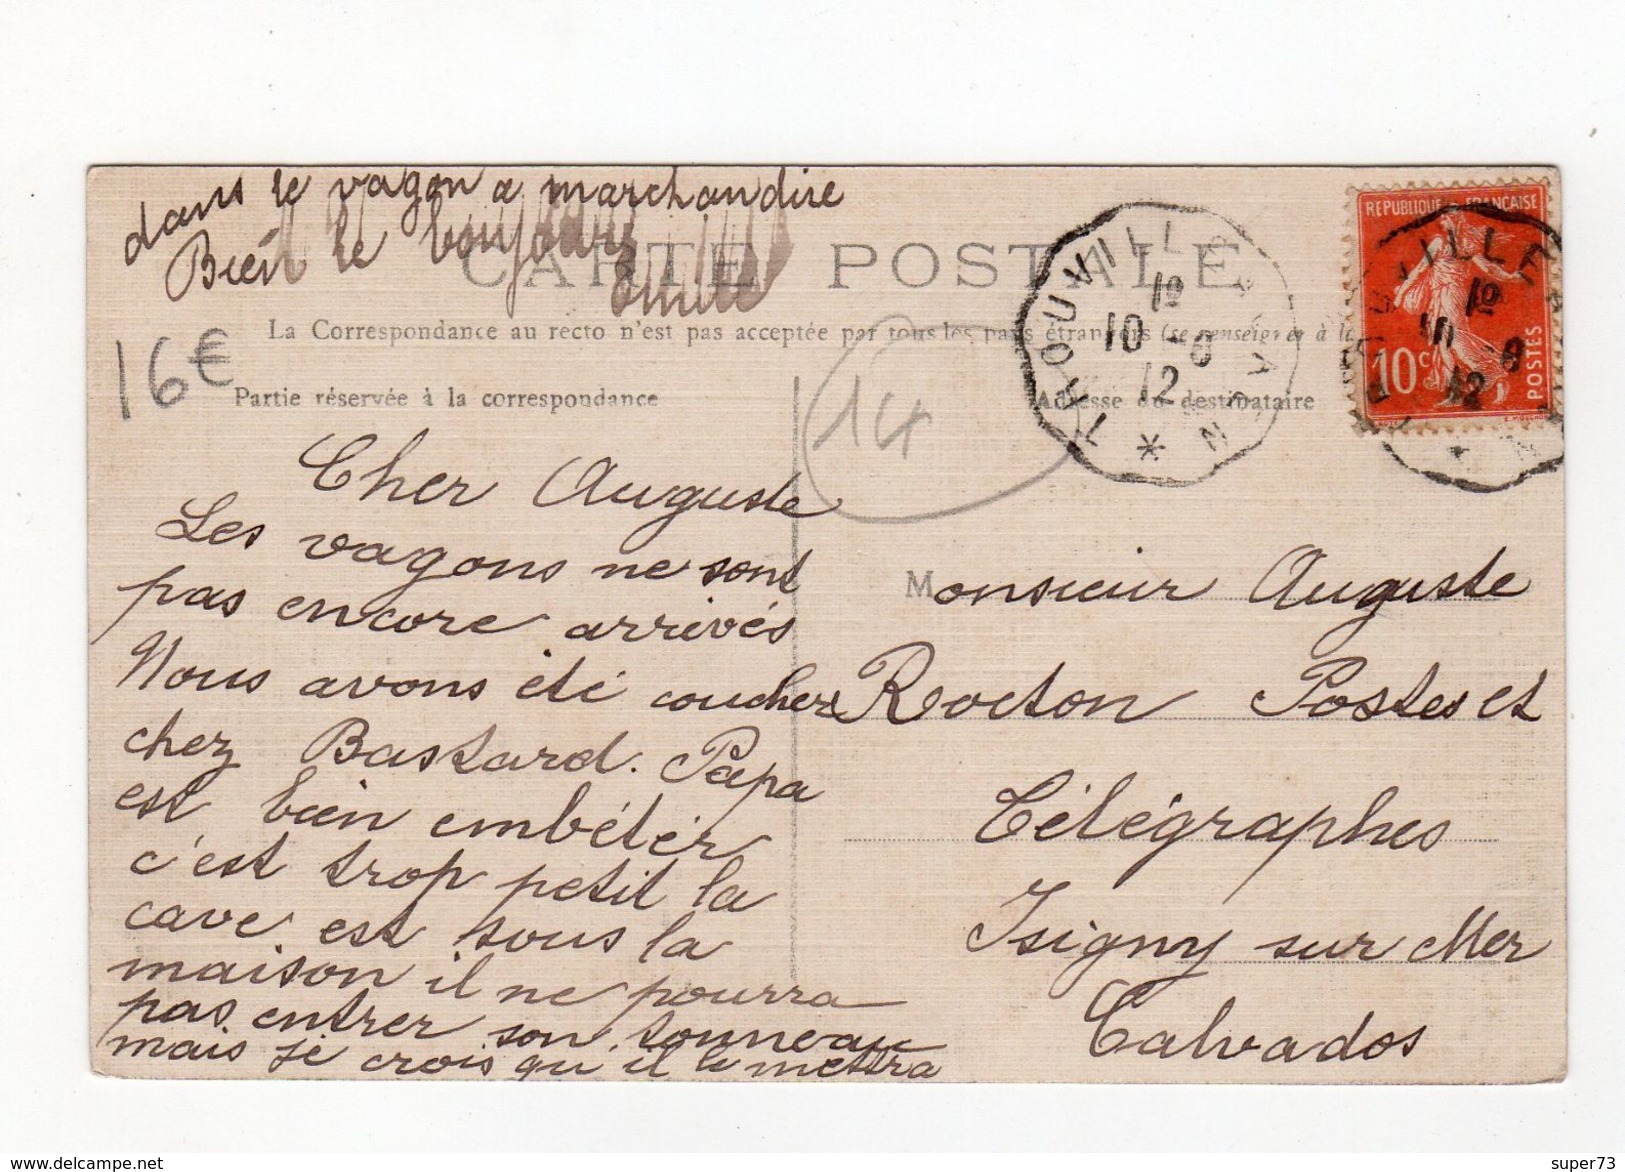 dans le vagon a marchandise
Bien le bonjour
Emile
CARTE POSTALE
La Correspondance au recto n'est pas acceptée par tous les pays étrangers (se renseigner à la
16€
14
Partie réservée à la correspondance
Adresse du destinataire
TROUVILLE A CAEN
10
10 -6
12
REPUBLIQUE FRANÇAISE
10c
POSTES
Cher Auguste
Les vagons ne sont
pas encore arrivés
Nous avons été coucher
chez Bastard. Papa
est bien embétér
c'est trop petit la
cave est sous la
maison il ne pourra
pas entrer son tonneau
mais je crois qu'il le mettra
Monsieur Auguste
Rocton Postes et
Télégraphes
Isigny sur Mer
Calvados
delcampe.net
super73